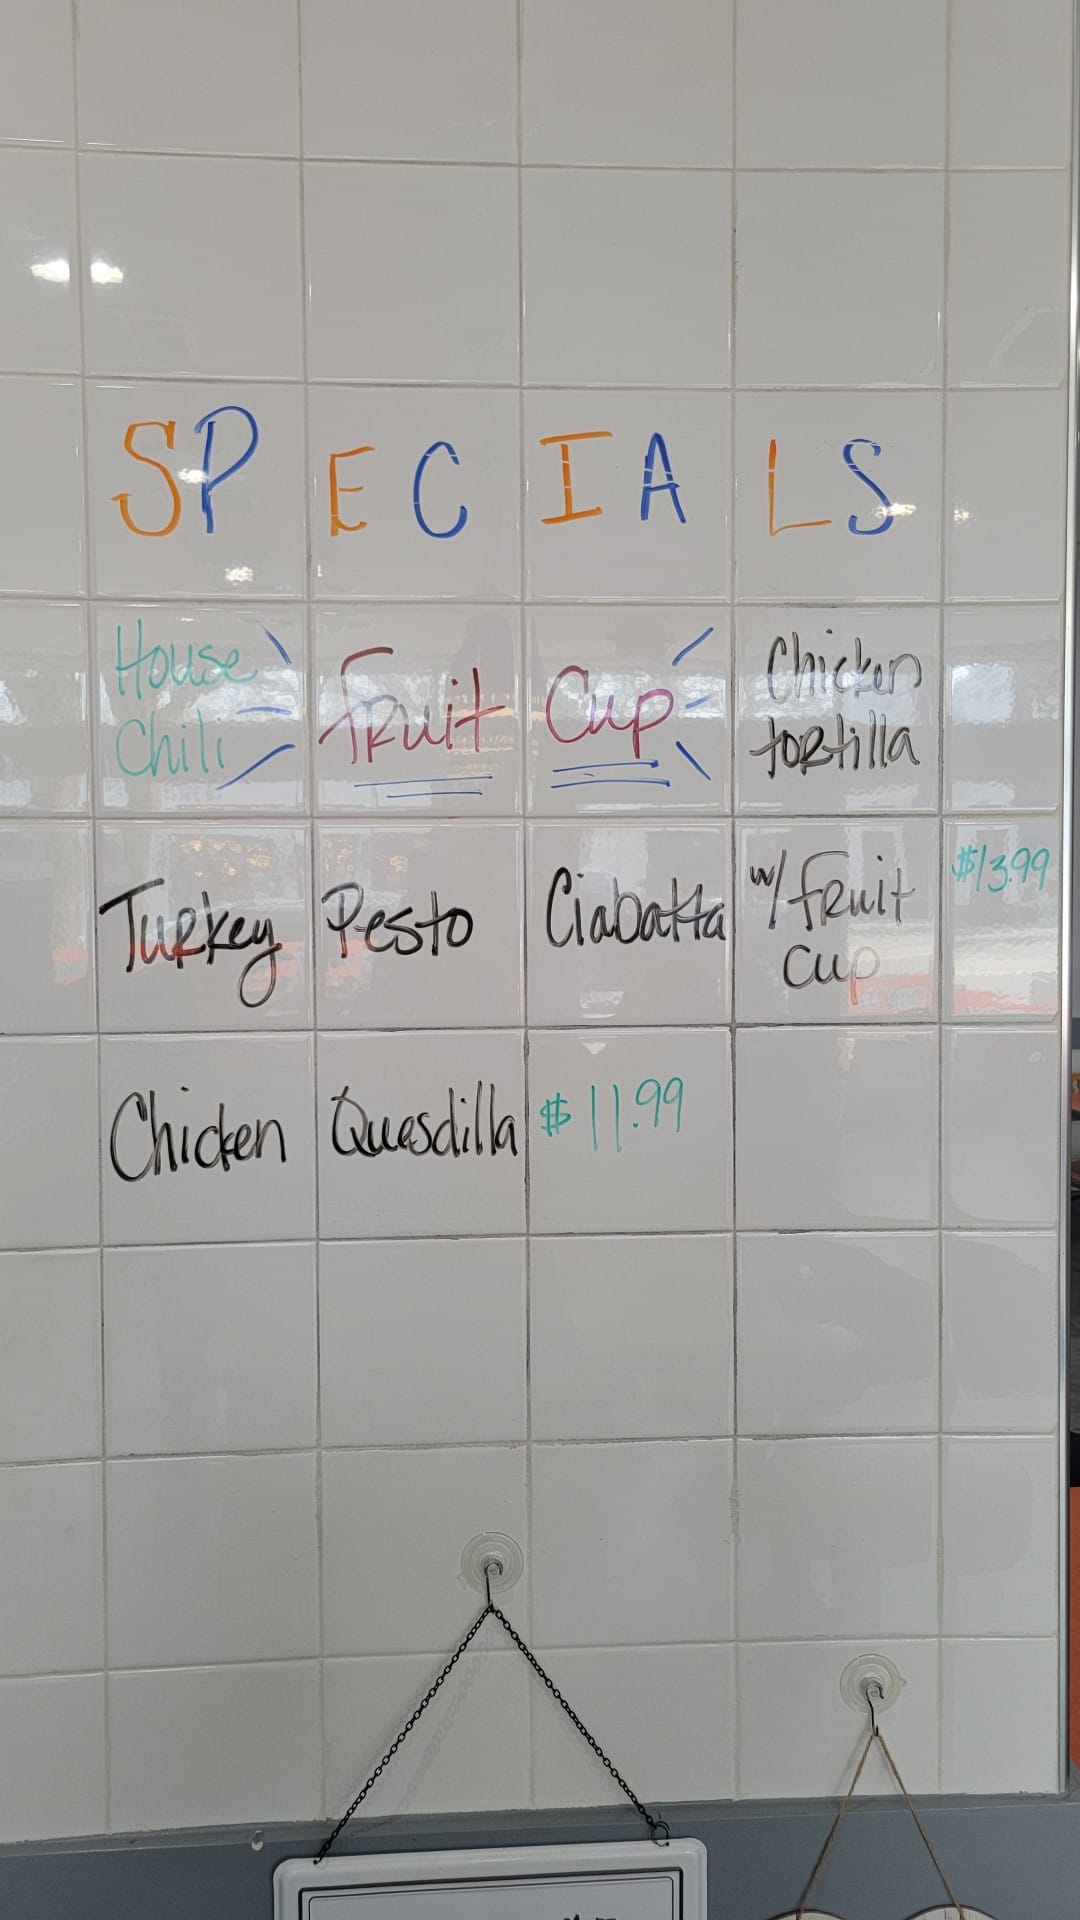 SPECIALS
House Chili
Fruit Cup
Chicken tortilla
Turkey Pesto Ciabatta w/ fruit cup $13.99
Chicken Quesdilla $11.99